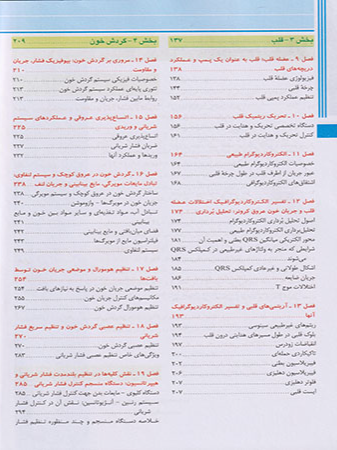 بخش ۳ - قلب ۱۳۷
فصل ۹ - عضله قلب؛ قلب به عنوان یک پمپ و عملکرد
دریچه‌های قلب ۱۳۸
فیزیولوژی عضلهٔ قلب ۱۳۸
چرخهٔ قلبی ۱۴۳
تنظیم عملکرد پمپی قلب ۱۵۲
فصل ۱۰ - تحریک ریتمیک قلب ۱۵۶
دستگاه تخصصی تحریک و هدایت در قلب ۱۵۶
کنترل تحریک و هدایت در قلب ۱۶۱
فصل ۱۱ - الکتروکاردیوگرام طبیعی ۱۶۴
خصوصیات الکتروکاردیوگرام طبیعی ۱۶۴
عبور جریان از اطراف قلب در طول چرخهٔ قلبی ۱۶۷
اشتقاق‌های الکتروکاردیوگرافی ۱۶۸
فصل ۱۲ - تفسیر الکتروکاردیوگرافیک اختلالات عضله
قلب و جریان خون عروق کرونر: تحلیل برداری ۱۷۳
اصول تحلیل برداری الکتروکاردیوگرام ۱۷۳
تحلیل برداری الکتروکاردیوگرام طبیعی
محور الکتریکی میانگین QRS بطنی و اهمیت آن ۱۸۱
شرایطی که منجر به ولتاژهای غیرطبیعی در کمپلکس QRS
می‌شوند ۱۸۴
اشکال طولانی و غیرعادی کمپلکس QRS
جریان ضایعه ۱۸۶
اختلالات موج T ۱۹۱
فصل ۱۳ - آریتمی‌های قلبی و تفسیر الکتروکاردیوگرافیک
آنها ۱۹۳
ریتم‌های غیرطبیعی سینوسی ۱۹۳
بلوک قلبی در طول مسیرهای هدایتی درون قلب ۱۹۴
انقباضات زودرس ۱۹۷
تاکیکاردی حمله‌ای ۲۰۰
فیبریلاسیون بطنی ۲۰۲
فیبریلاسیون دهلیزی ۲۰۶
فلوتر دهلیزی ۲۰۷
ایست قلبی ۲۰۷
بخش ۴ - گردش خون ۲۰۹
فصل ۱۴ - مروری بر گردش خون؛ بیوفیزیک فشار، جریان
و مقاومت ۲۱۰
خصوصیات فیزیکی سیستم گردش خون ۲۱۰
تئوری پایه‌ای عملکرد سیستم گردش خون ۲۱۳
روابط مابین فشار، جریان و مقاومت ۲۱۳
فصل ۱۵ - اتساع‌پذیری عروقی و عملکردهای سیستم
شریانی و وریدی ۲۲۵
اتساع‌پذیری عروق ۲۲۵
ضربان فشار شریانی ۲۲۷
وریدها و عملکرد آنها ۲۳۲
فصل ۱۶ - گردش خون در عروق کوچک و سیستم لنفاوی:
تبادل مایعات مویرگی، مایع بینابینی و جریان لنف ۲۳۸
ساختار گردش خون در عروق کوچک و سیستم مویرگی ۲۳۸
جریان خون در مویرگ‌ها - وازوموشن ۲۴۰
تبادل آب، مواد تغذیه‌ای و سایر مواد بین خون و مایع
بینابینی ۲۴۱
فضای میان‌بافتی و مایع بینابینی ۲۴۲
فیلتراسیون مایع از مویرگ‌ها ۲۴۳
سیستم لنفاوی ۲۴۹
فصل ۱۷ - تنظیم هومورال و موضعی جریان خون توسط
بافت‌ها ۲۵۴
تنظیم موضعی جریان خون در پاسخ به نیازهای بافت ۲۵۴
مکانیسم‌های کنترل جریان خون ۲۵۵
تنظیم هومورال گردش خون ۲۶۷
فصل ۱۸ - تنظیم عصبی گردش خون و تنظیم سریع فشار
شریانی ۲۷۰
تنظیم عصبی گردش خون ۲۷۰
ویژگی‌های خاص تنظیم عصبی فشار شریانی ۲۸۳
فصل ۱۹ - نقش کلیه‌ها در تنظیم بلندمدت فشار شریانی و
هیپرتانسیون: دستگاه منسجم کنترل فشار شریانی ۲۸۵
دستگاه کلیوی - مایعات بدن جهت کنترل فشار شریانی ۲۸۵
سیستم رنین - آنژیوتانسین: نقش آن در کنترل فشار
شریانی ۲۹۴
خلاصه دستگاه منسجم و چند منظوره تنظیم فشار